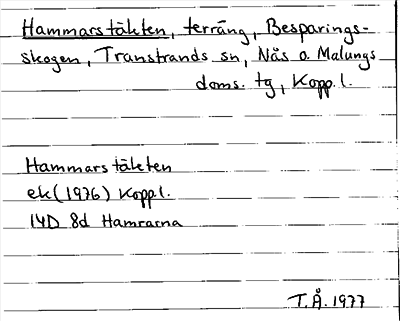 Hammarstäkten, terräng, Besparings-
skogen, Transtrands sn, Nås o. Malungs
doms. tg, Kopp. l.
Hammarstäkten
ek (1976) Kopp l.
14D 8d Hamrarna
T.Å. 1977